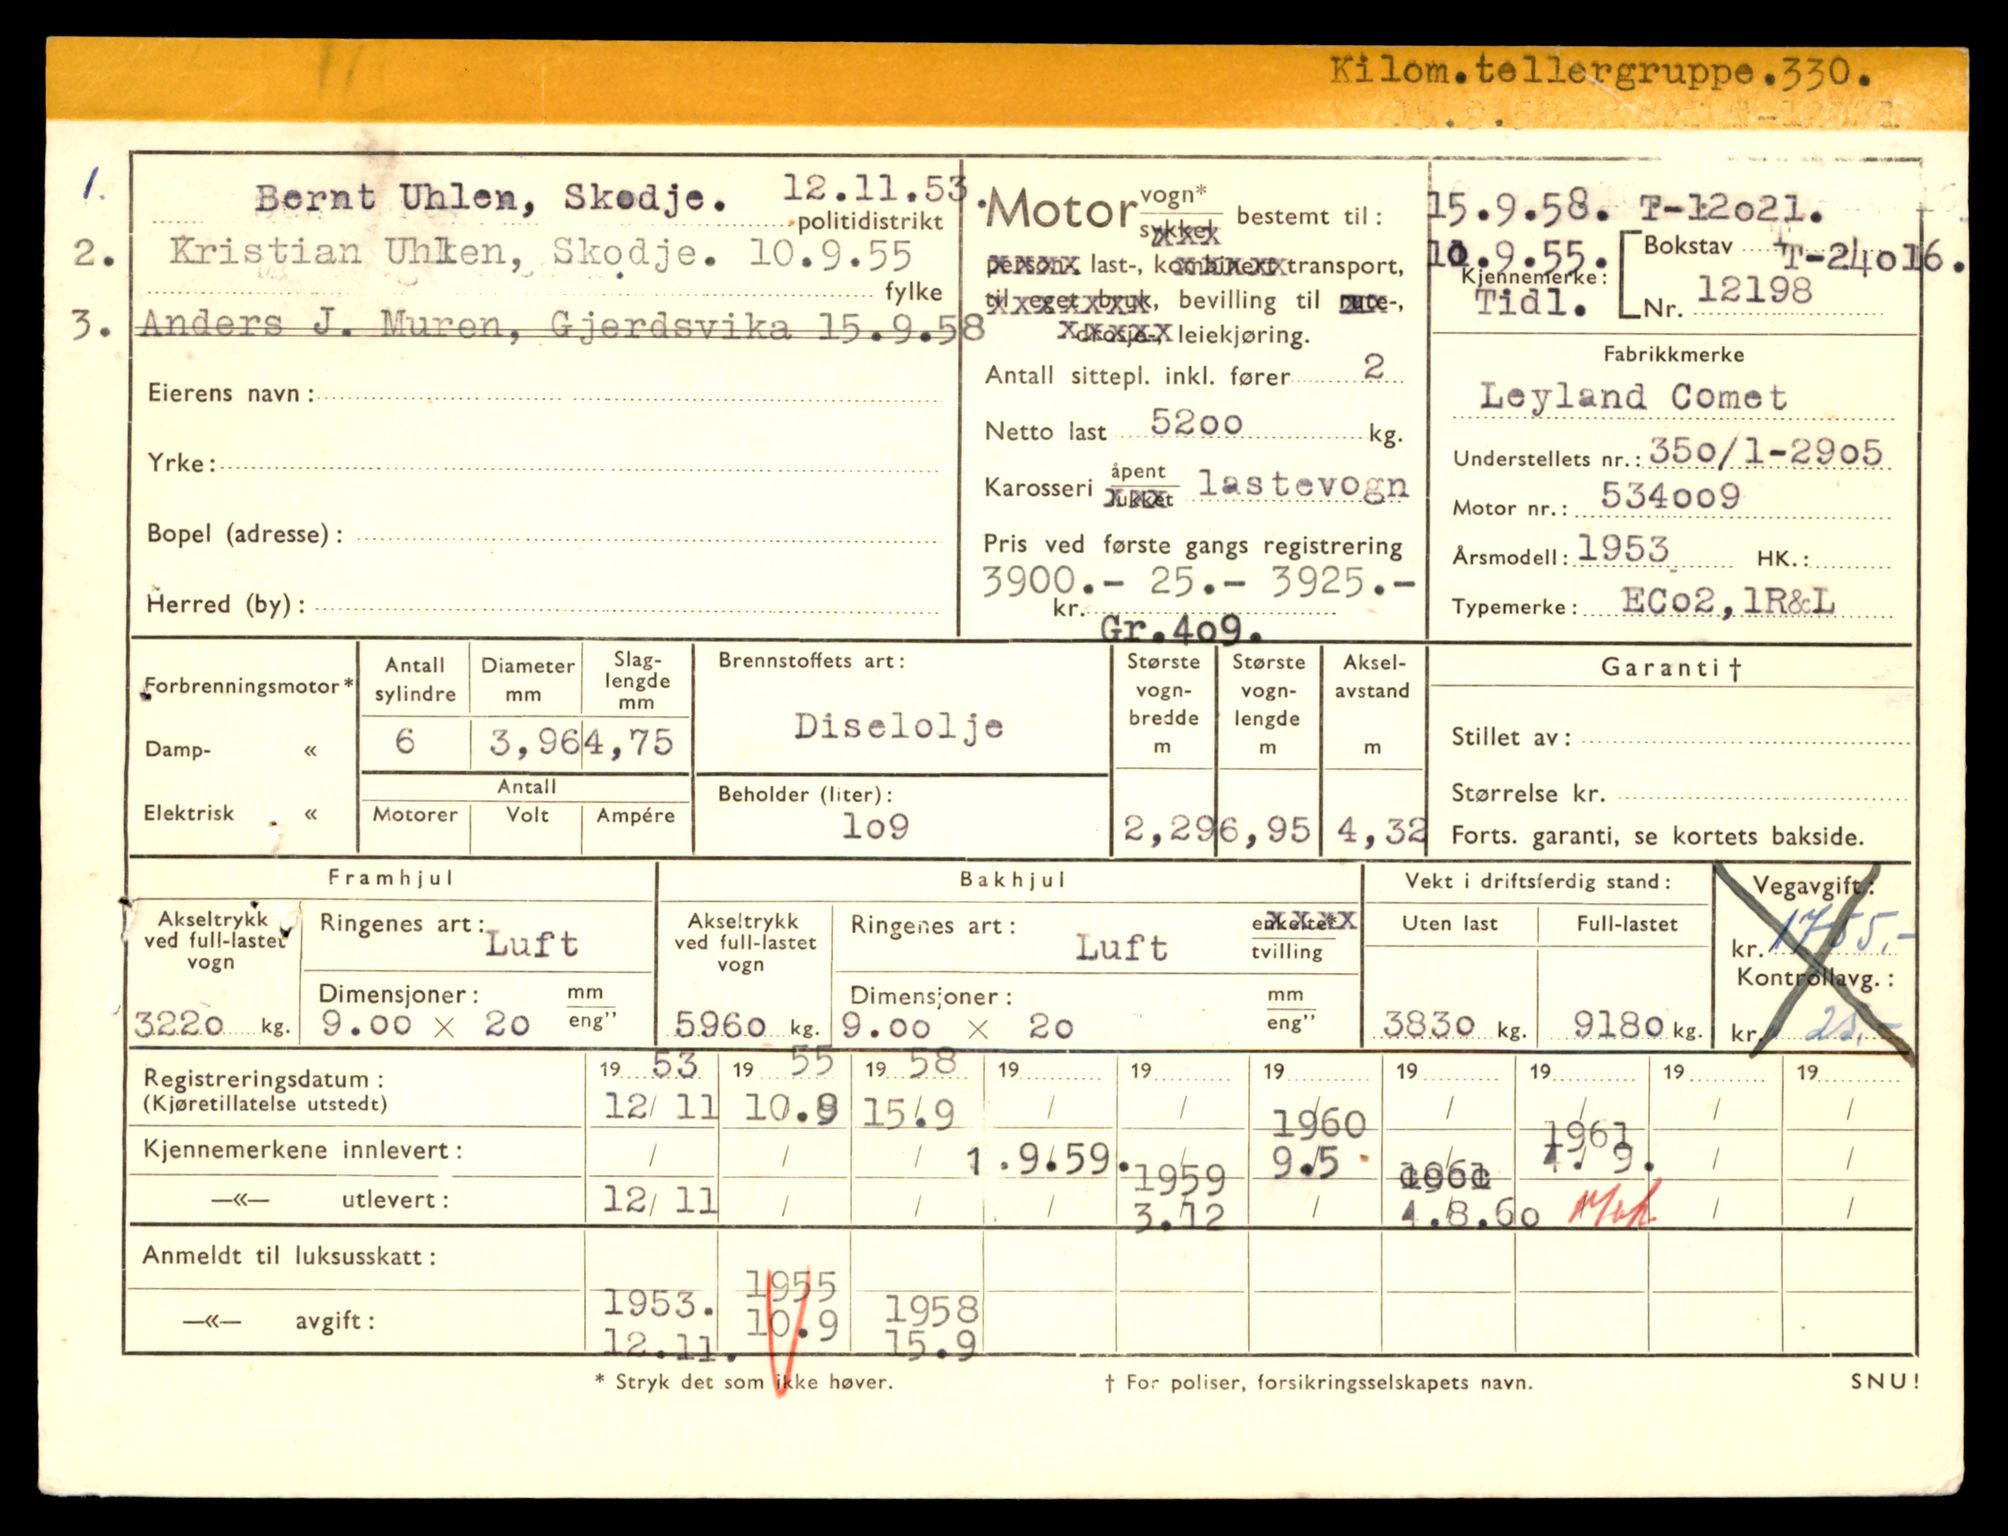 Kilom.tellergruppe.330.
1. Bernt Uhlen, Skodje. 12.11.53.
politidistrikt
2. Kristian Uhlen, Skodje. 10.9.55
fylke
3. Anders J. Muren, Gjerdsvika 15.9.58
Eierens navn:
Yrke:
Bopel (adresse):
Herred (by):
Motor vogn* sykkel bestemt til:
person-, last-, kombinert transport,
til eget bruk, bevilling til rute-,
drosje-, leiekjøring.
Antall sittepl. inkl. fører 2
Netto last 5200 kg.
Karosseri åpent lukket lastevogn
Pris ved første gangs registrering
3900.- 25.- 3925.-
kr.
Gr.409.
15.9.58. T-12021.
10.9.55. Bokstav T-24016.
Kjennemerke:
Tidl. Nr. 12198
Fabrikkmerke
Leyland Comet
Understellets nr.: 350/1-2905
Motor nr.: 534009
Årsmodell: 1953 HK.:
Typemerke: ECo2,1R&L
Forbrenningsmotor*
Damp- «
Elektrisk «
Antall sylindre
Diameter mm
Slag-lengde mm
6 3,96 4,75
Antall
Motorer Volt Ampére
Brennstoffets art:
Diselolje
Beholder (liter):
109
Største vogn-bredde m
Største vogn-lengde m
Aksel-avstand m
2,29 6,95 4,32
Garanti †
Stillet av:
Størrelse kr.
Forts. garanti, se kortets bakside.
Framhjul
Akseltrykk ved full-lastet vogn
3220 kg.
Ringenes art: Luft
Dimensjoner: mm eng"
9.00 × 20
Bakhjul
Akseltrykk ved full-lastet vogn
5960 kg.
Ringenes art: Luft enkelte* tvilling
Dimensjoner: mm eng"
9.00 × 20
Vekt i driftsferdig stand:
Uten last Full-lastet
3830 kg. 9180 kg.
Vegavgift:
kr. 1755.-
Kontrollavg.:
kr. 25.-
Registreringsdatum: 19 53 19 55 19 58 19 19 19 19 19 19 19
(Kjøretillatelse utstedt) 12/11 10.9 15.9 / / / / / / /
1960 1961
Kjennemerkene innlevert: / / / 1.9.59. / 9.5 / 1. 9. / /
1959 1961
—«— utlevert: 12/11 / / / 3.12 / 4.8.60 / /
Anmeldt til luksusskatt:
1953. 1955 1958
—«— avgift: 12.11. 10.9 15.9
* Stryk det som ikke høver.
† For poliser, forsikringsselskapets navn.
SNU!